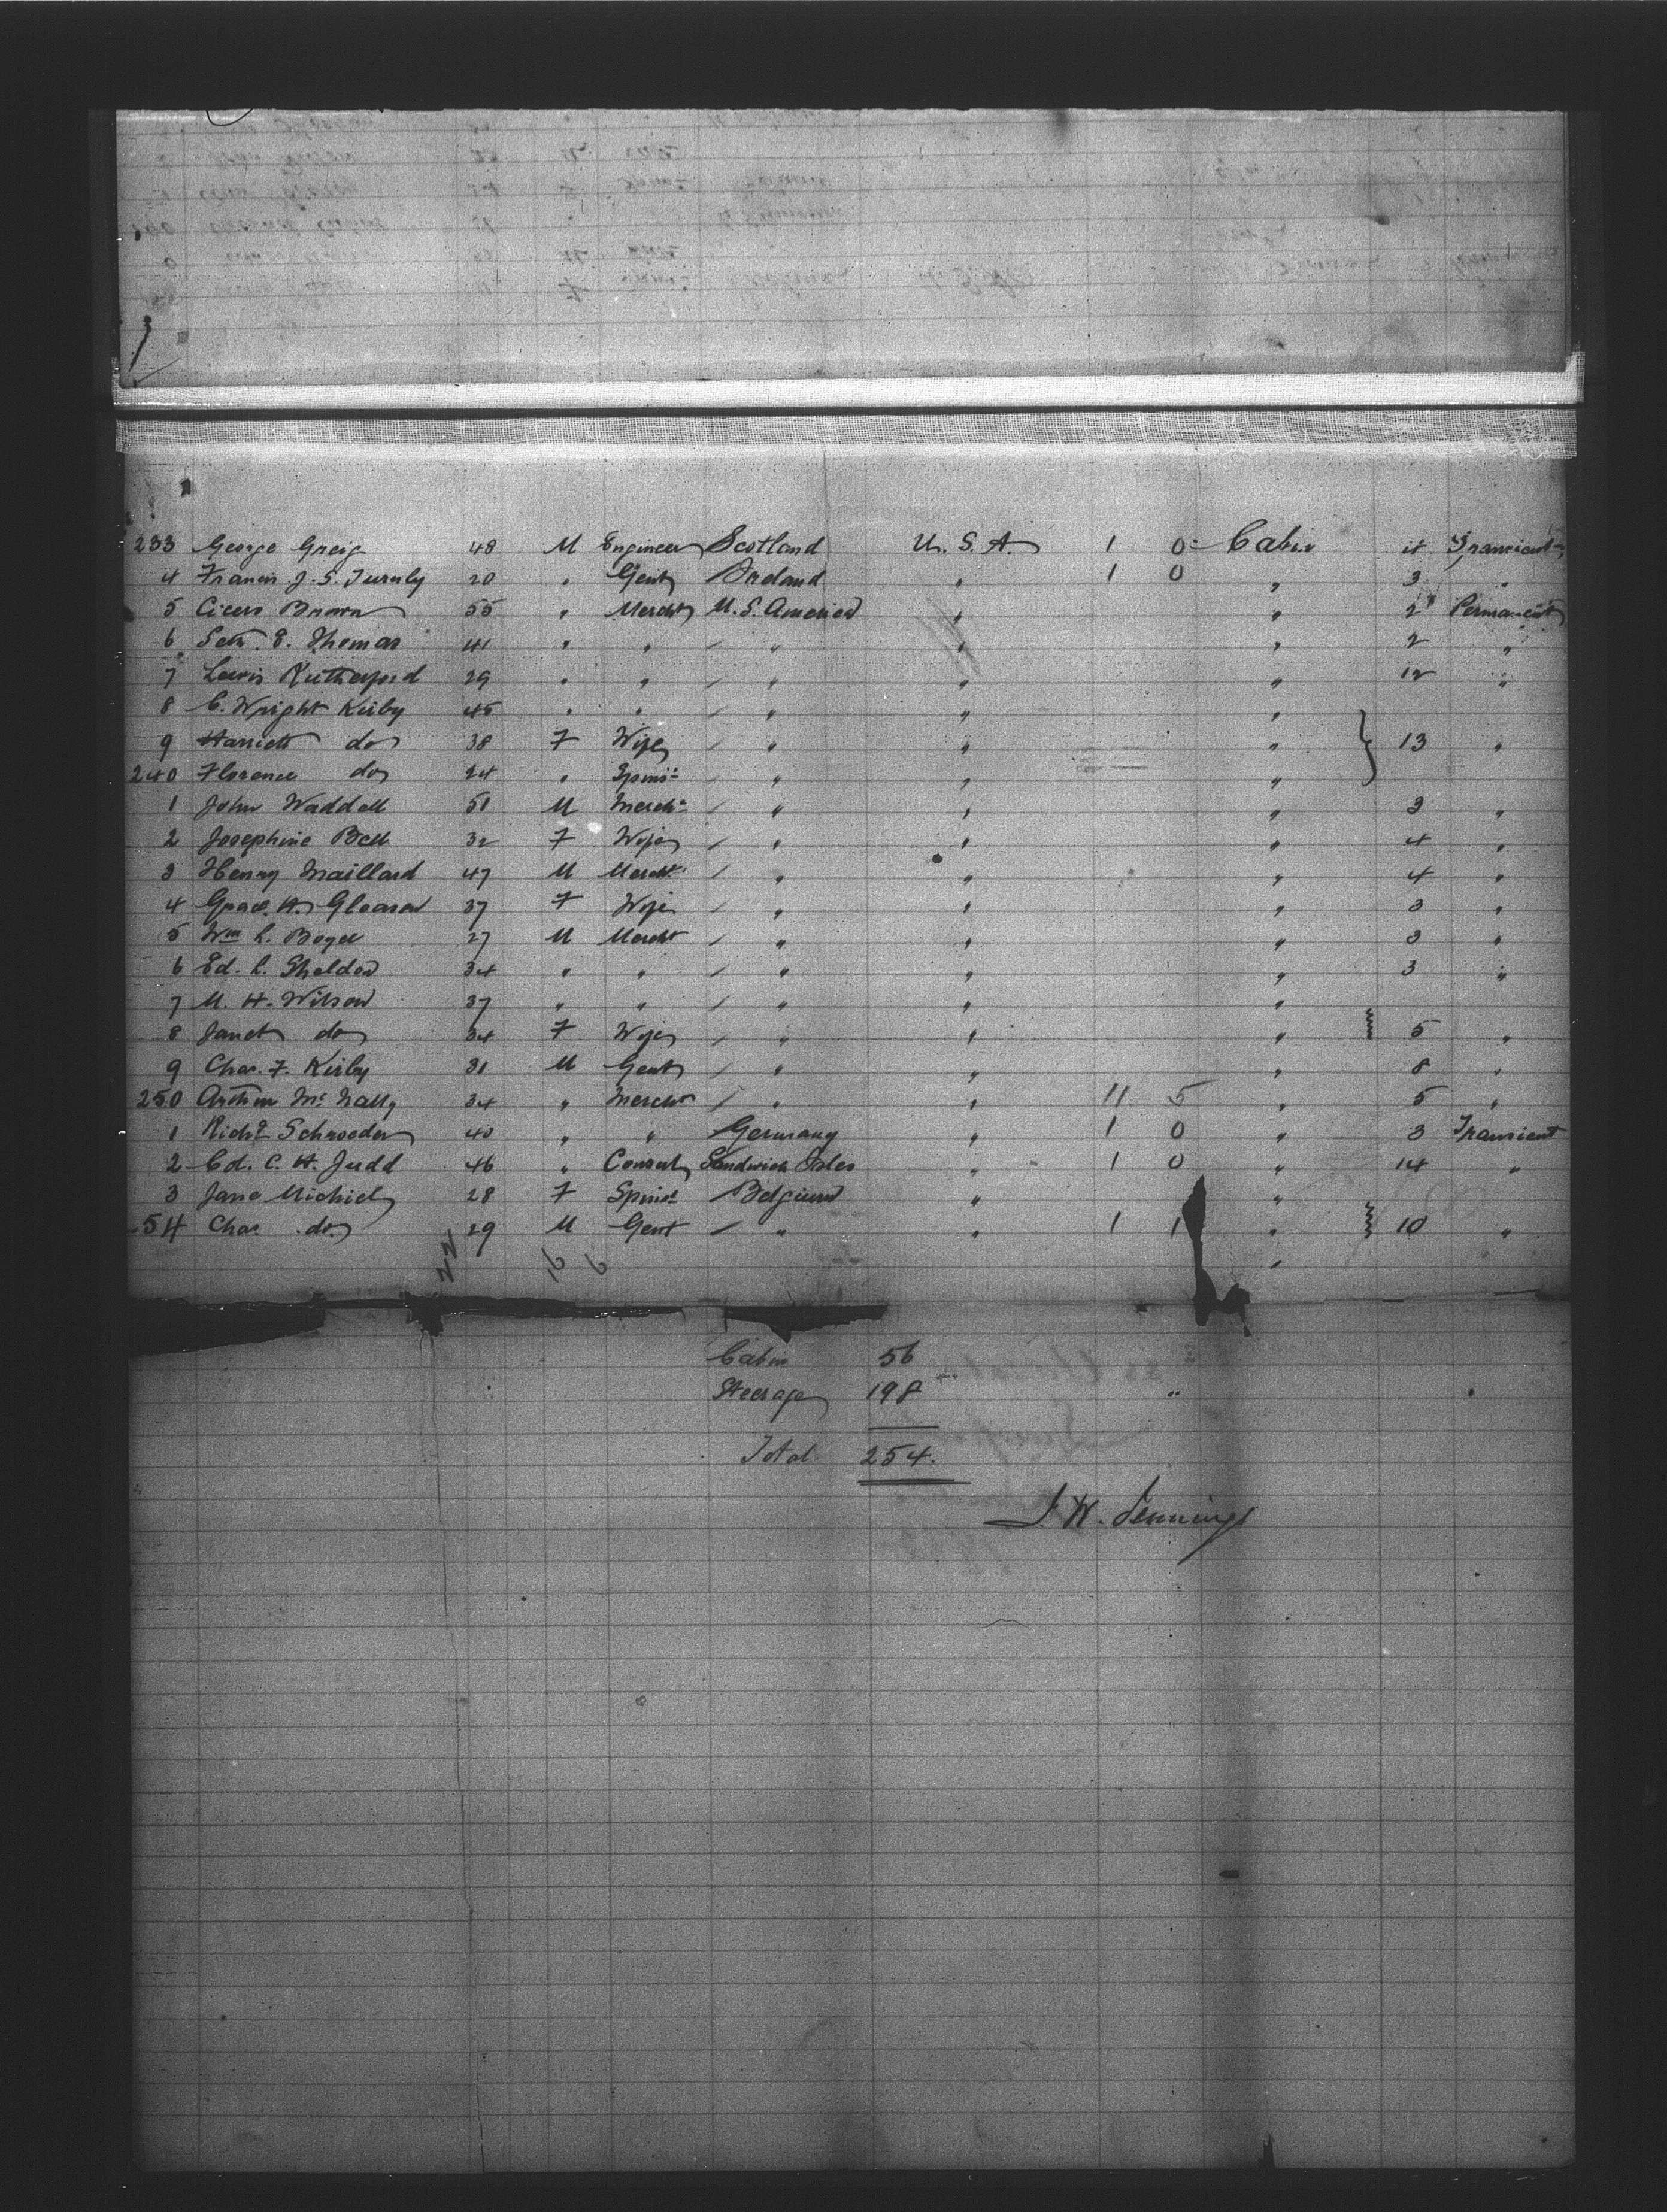 233 George Greig 48 M Engineer Scotland U.S.A. 1 0 Cabin 4 Transient
4 Francis J. S. Turnly 20 " Gent Ireland " 1 0 " 3 "
5 Cicero Brown 55 " Mercht U.S. America " " 2 Permanent
6 Seth E. Thomas 41 " " " " " 2 "
7 Lewis Rutherford 29 " " " " " 12 "
8 C. Wright Kirby 45 " " " " "
9 Harriett do 38 F Wife " " " } 13 "
240 Florence do 24 " Spinsr " " "
1 John Waddell 51 M Mercht " " " 3 "
2 Josephine Bell 32 F Wife " " " 4 "
3 Henry Maillard 47 M Mercht " " " 4 "
4 Grace H. Gleason 37 F Wife " " " 3 "
5 Wm L. Boyd 27 M Mercht " " " 3 "
6 Ed. L. Sheldon 34 " " " " " 3 "
7 M. H. Wilson 37 " " " " "
8 Janet do 34 F Wife " " " } 5 "
9 Chas. F. Kirby 31 M Gent " " " 8 "
250 Arthur Mc Nally 34 " Mercht " " 11 5 " 5 "
1 Richd Schroeder 40 " " Germany " 1 0 " 3 Transient
2 Col. C. H. Judd 46 " Consul Sandwich Isles " 1 0 " 14 "
3 Jane Michiels 28 F Spinst Belgium " "
254 Chas. do 29 M Gent " " 1 1 " } 10 "
Cabin 56
Steerage 198 "
Total 254.
J. W. Jennings